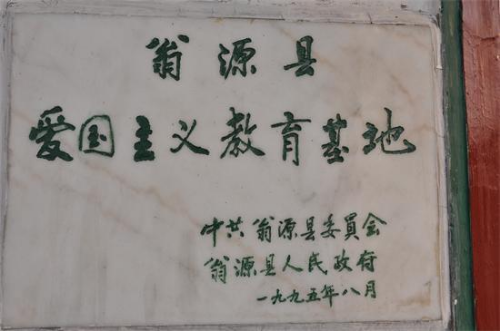 翁源县
爱国主义教育基地
中共翁源县委員会
翁源县人民政府
一九九五年八月